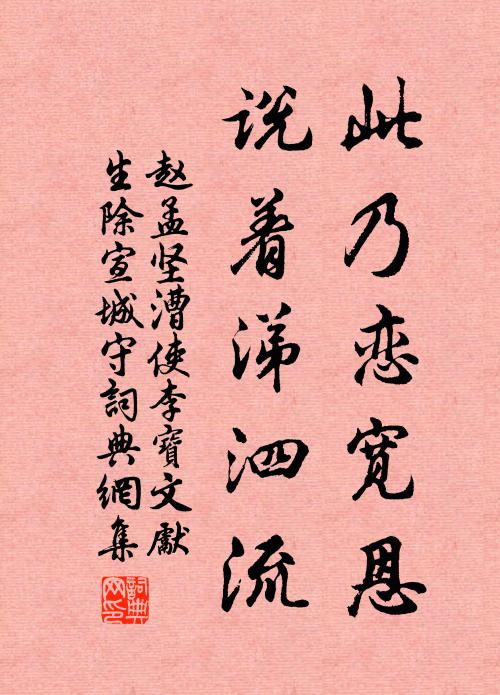 此乃恋宽恩
说着涕泗流
赵孟坚漕使李寶文獻
生除宣城守詞典網集
詞典網印